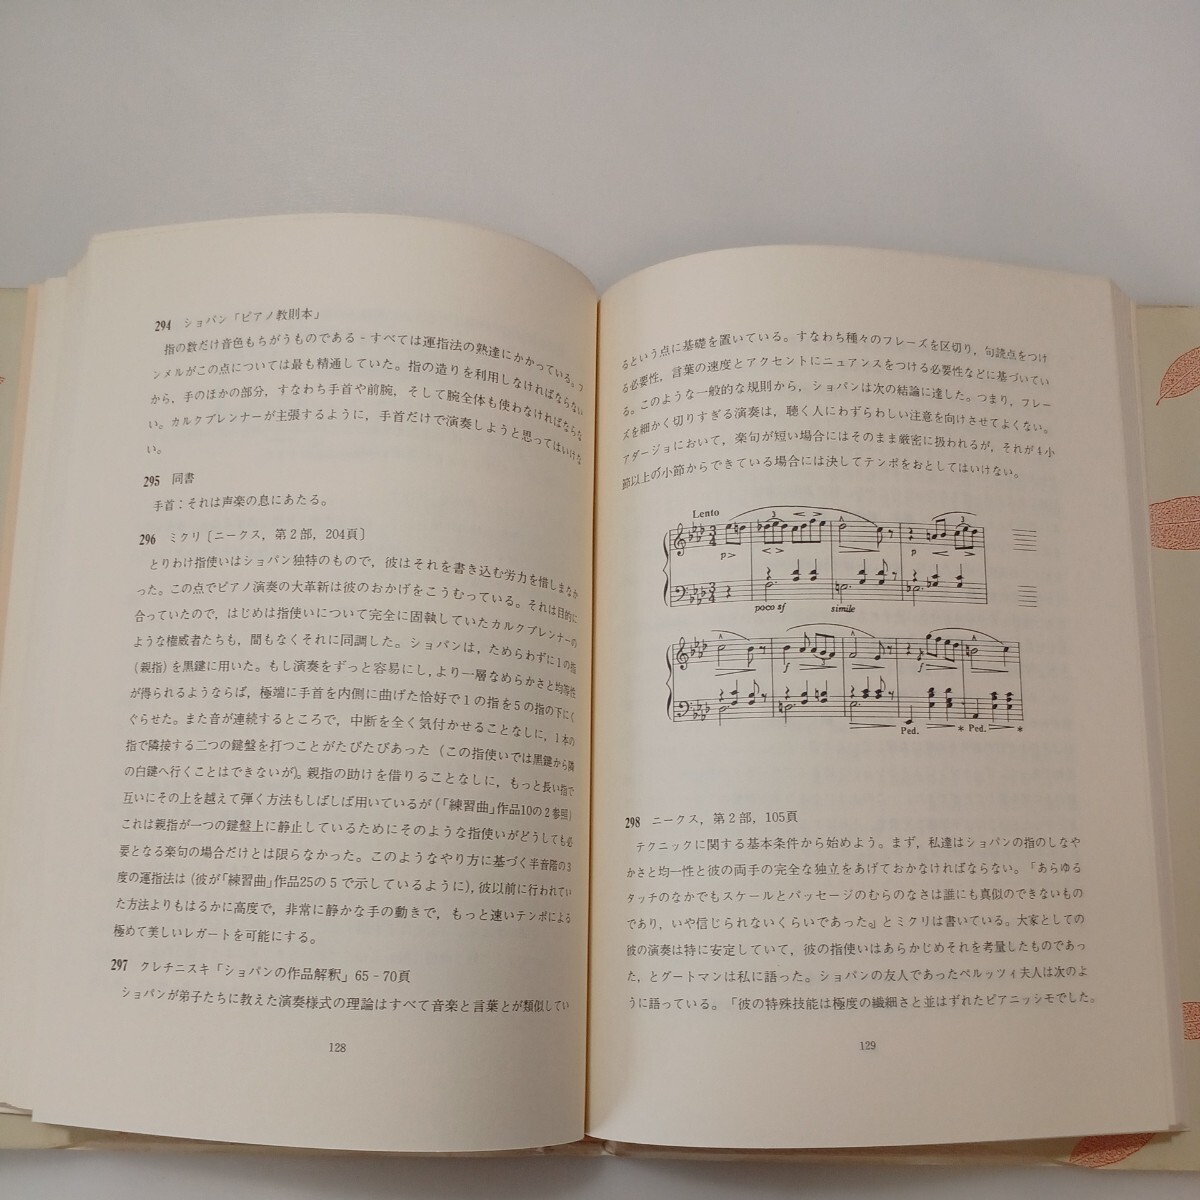 294 ショパン「ピアノ教則本」
指の数だけ音色もちがうものである-すべては運指法の熟達にかかっている。フ
ンメルがこの点については最も精通していた。指の造りを利用しなければならない
から，手のほかの部分，すなわち手首や前腕，そして腕全体も使わなければならな
い。カルクブレンナーが主張するように，手首だけで演奏しようと思ってはいけな
い。
295 同書
手首：それは声楽の息にあたる。
296 ミクリ［ニークス，第2部，204頁］
とりわけ指使いはショパン独特のもので，彼はそれを書き込む労力を惜しまなか
った。この点でピアノ演奏の大革新は彼のおかげをこうむっている。それは目的に
合っていたので，はじめは指使いについて完全に固執していたカルクブレンナーの
ような権威者たちも，間もなくそれに同調した。ショパンは，ためらわずに1の指
（親指）を黒鍵に用いた。もし演奏をずっと容易にし，より一層なめらかさと均等性
が得られるようならば，極端に手首を内側に曲げた恰好で1の指を5の指の下にく
ぐらせた。また音が連続するところで，中断を全く気付かせることなしに，1本の
指で隣接する二つの鍵盤を打つことがたびたびあった（この指使いでは黒鍵から隣
の白鍵へ行くことはできないが）。親指の助けを借りることなしに，もっと長い指で
互いにその上を越えて弾く方法もしばしば用いているが（「練習曲」作品10の2参照）
これは親指が一つの鍵盤上に静止しているためにそのような指使いがどうしても必
要となる楽句の場合だけとは限らなかった。このようなやり方に基づく半音階の3
度の運指法は（彼が「練習曲」作品25の5で示しているように），彼以前に行われてい
た方法よりもはるかに高度で，非常に静かな手の動きで，もっと速いテンポによる
極めて美しいレガートを可能にする。
297 クレチニスキ「ショパンの作品解釈」65-70頁
ショパンが弟子たちに教えた演奏様式の理論はすべて音楽と言葉とが類似してい
128
るという点に基礎を置いている。すなわち種々のフレーズを区切り，句読点をつけ
る必要性，言葉の速度とアクセントにニュアンスをつける必要性などに基づいてい
る。このような一般的な規則から，ショパンは次の結論に達した。つまり，フレー
ズを細かく切りすぎる演奏は，聴く人にわずらわしい注意を向けさせてよくない。
アダージョにおいて，楽句が短い場合にはそのまま厳密に扱われるが，それが4小
節以上の小節からできている場合には決してテンポをおとしてはいけない。
Lento
3 3
p p
poco sf simile
f f
Ped. * Ped. *
298 ニークス，第2部，105頁
テクニックに関する基本条件から始めよう。まず，私達はショパンの指のしなや
かさと均一性と彼の両手の完全な独立をあげておかなければならない。「あらゆる
タッチのなかでもスケールとパッセージのむらのなさは誰にも真似のできないもの
であり，いや信じられないくらいであった。」とミクリは書いている。大家としての
彼の演奏は特に安定していて，彼の指使いはあらかじめそれを考量したものであっ
た，とグートマンは私に語った。ショパンの友人であったペルッツィ夫人は次のよ
うに語っている。「彼の特殊技能は極度の繊細さと並はずれたピアニッシモでした。
129